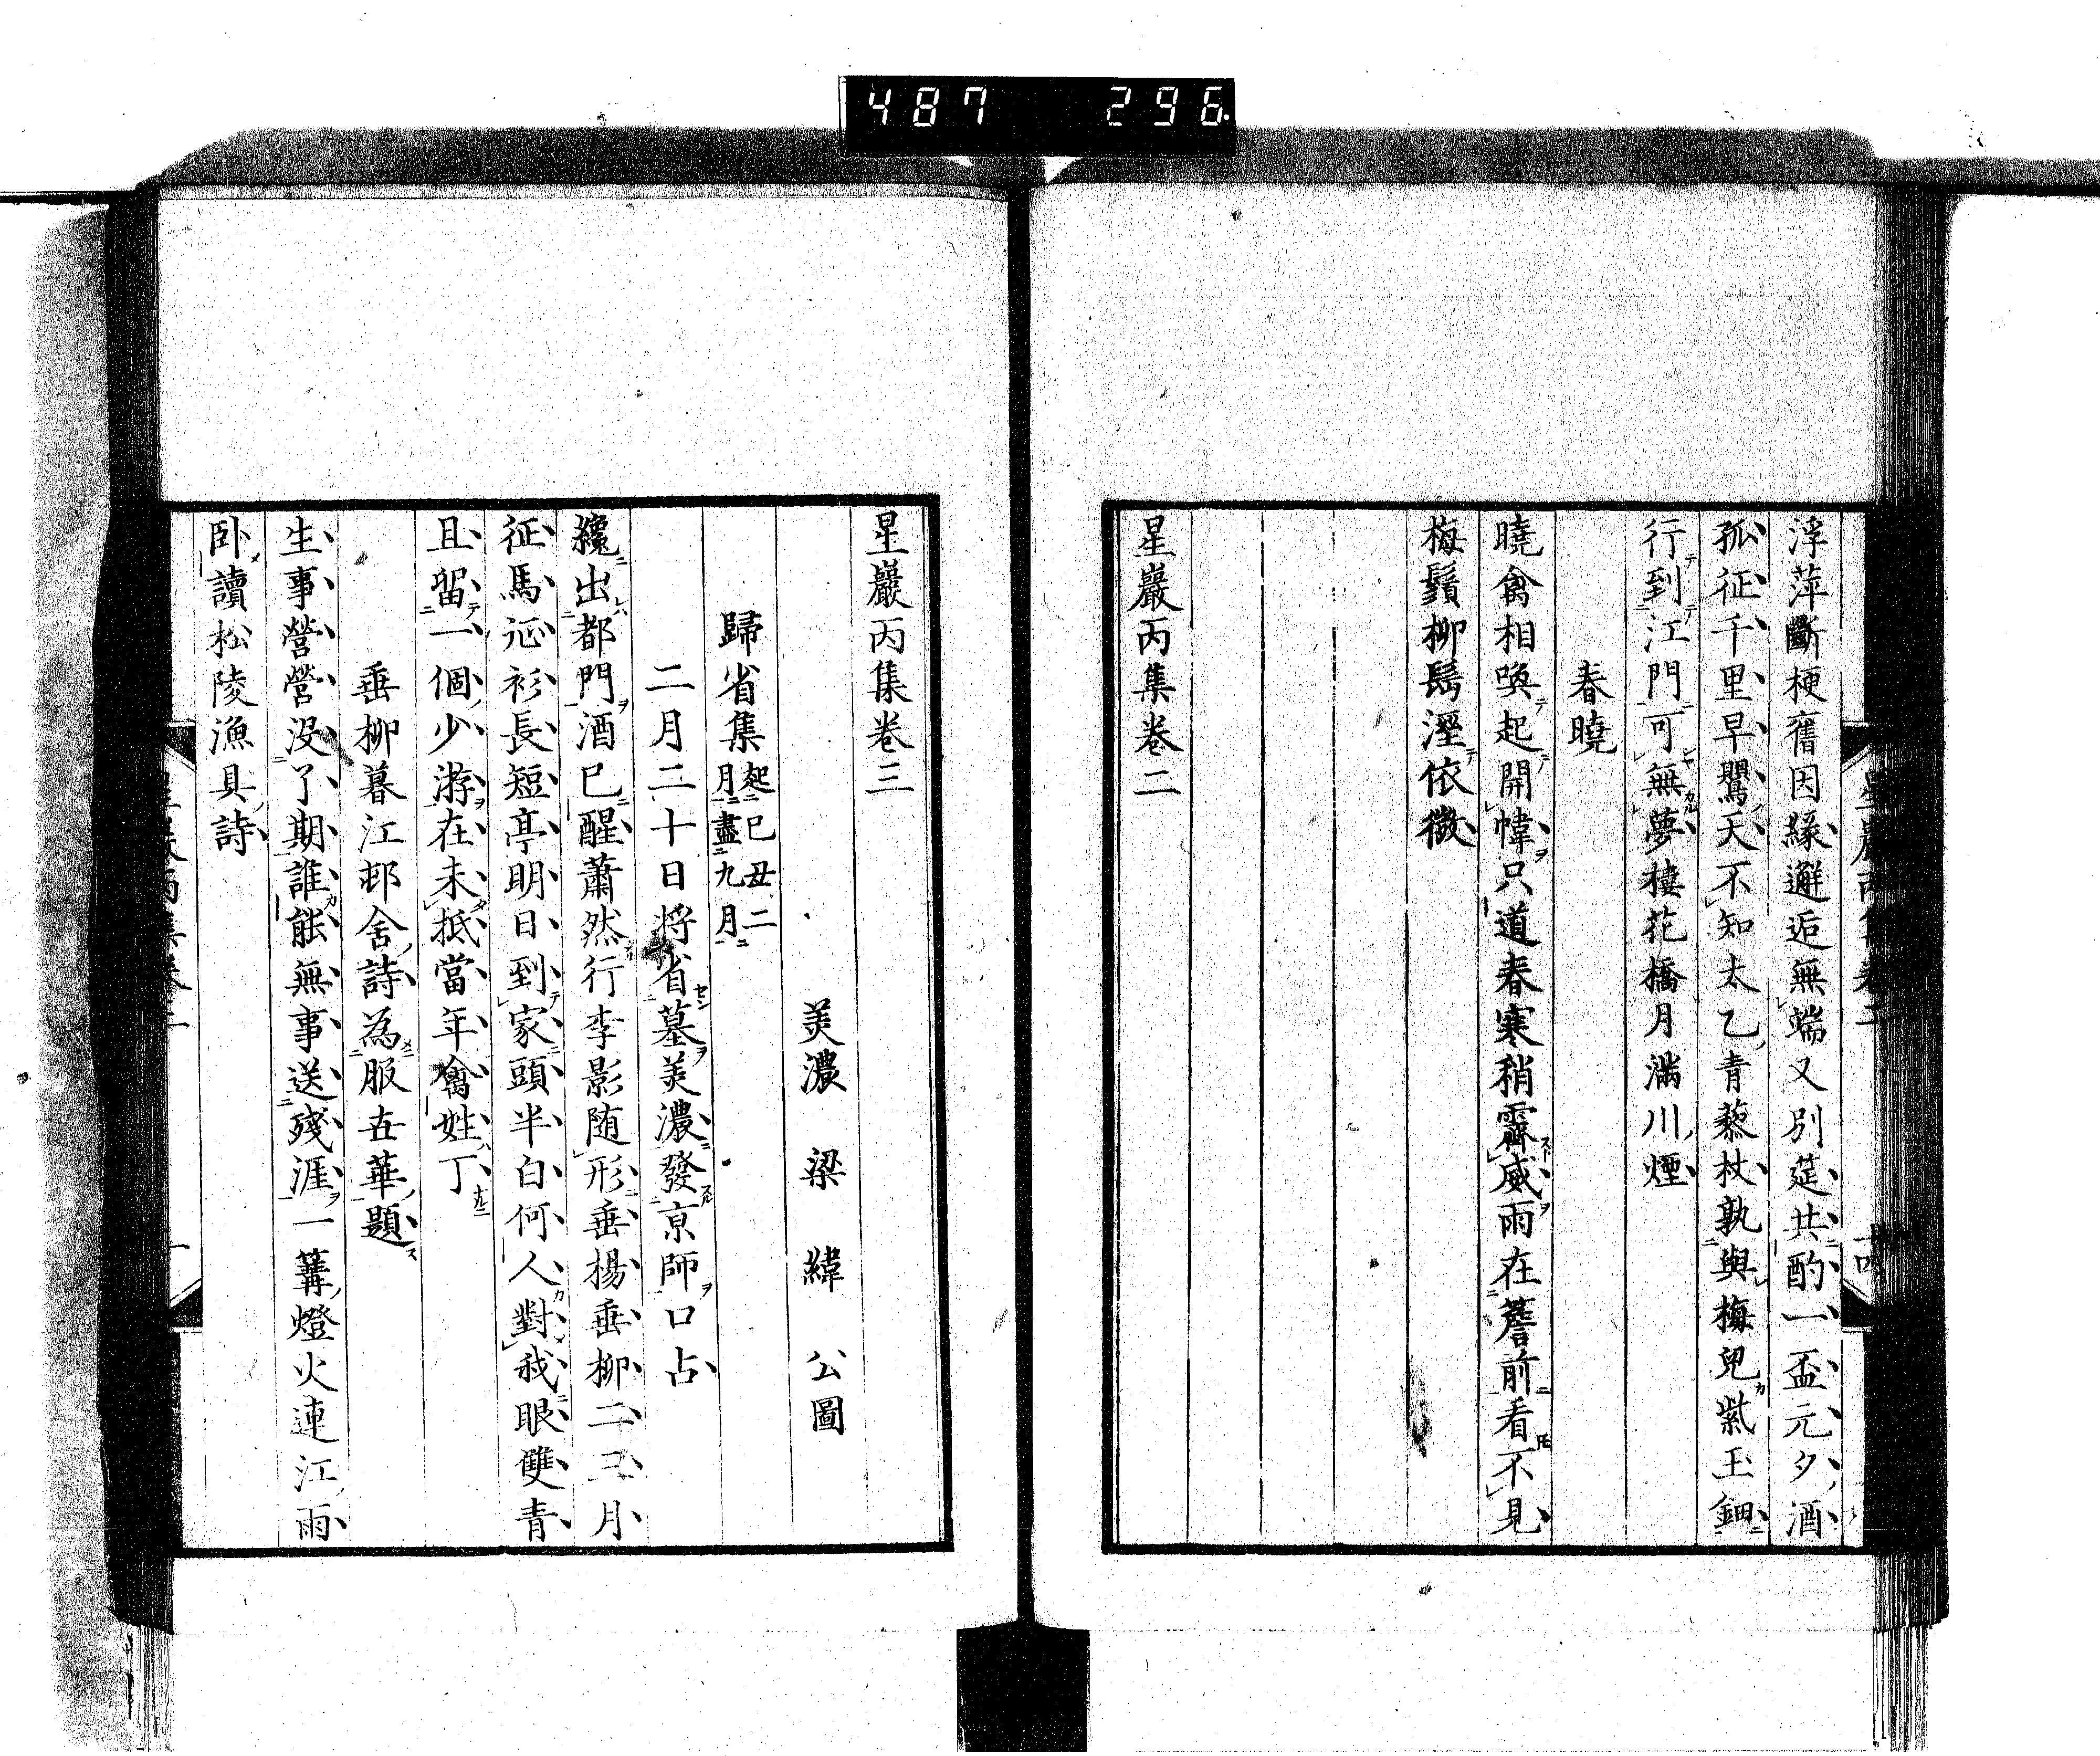 487 296
浮萍斷梗舊因緣邂逅無端又別筵共酌一盃元夕酒
孤征千里早鸎天不知太乙青藜杖孰與梅兒紫玉鈿
行到江門可無夢棲花橋月滿川煙
春曉
曉禽相喚起開幃只道春寒稍霽威雨在簷前看不見
梅鬚柳髩溼依微
星巖丙集卷二
星巖丙集卷三
美濃 梁 緯 公圖
歸省集 起己丑二月盡九月
二月二十日将省墓美濃發京師口占
纔出都門酒已醒蕭然行李影随形垂楊垂柳二三月
征馬征衫長短亭明日到家頭半白何人對我眼雙青
且留一個少游在未抵當年禽姓丁
垂柳暮江邨舍詩為服五華題
生事營營没了期誰能無事送殘涯一篝燈火連江雨
卧讀松陵漁具詩